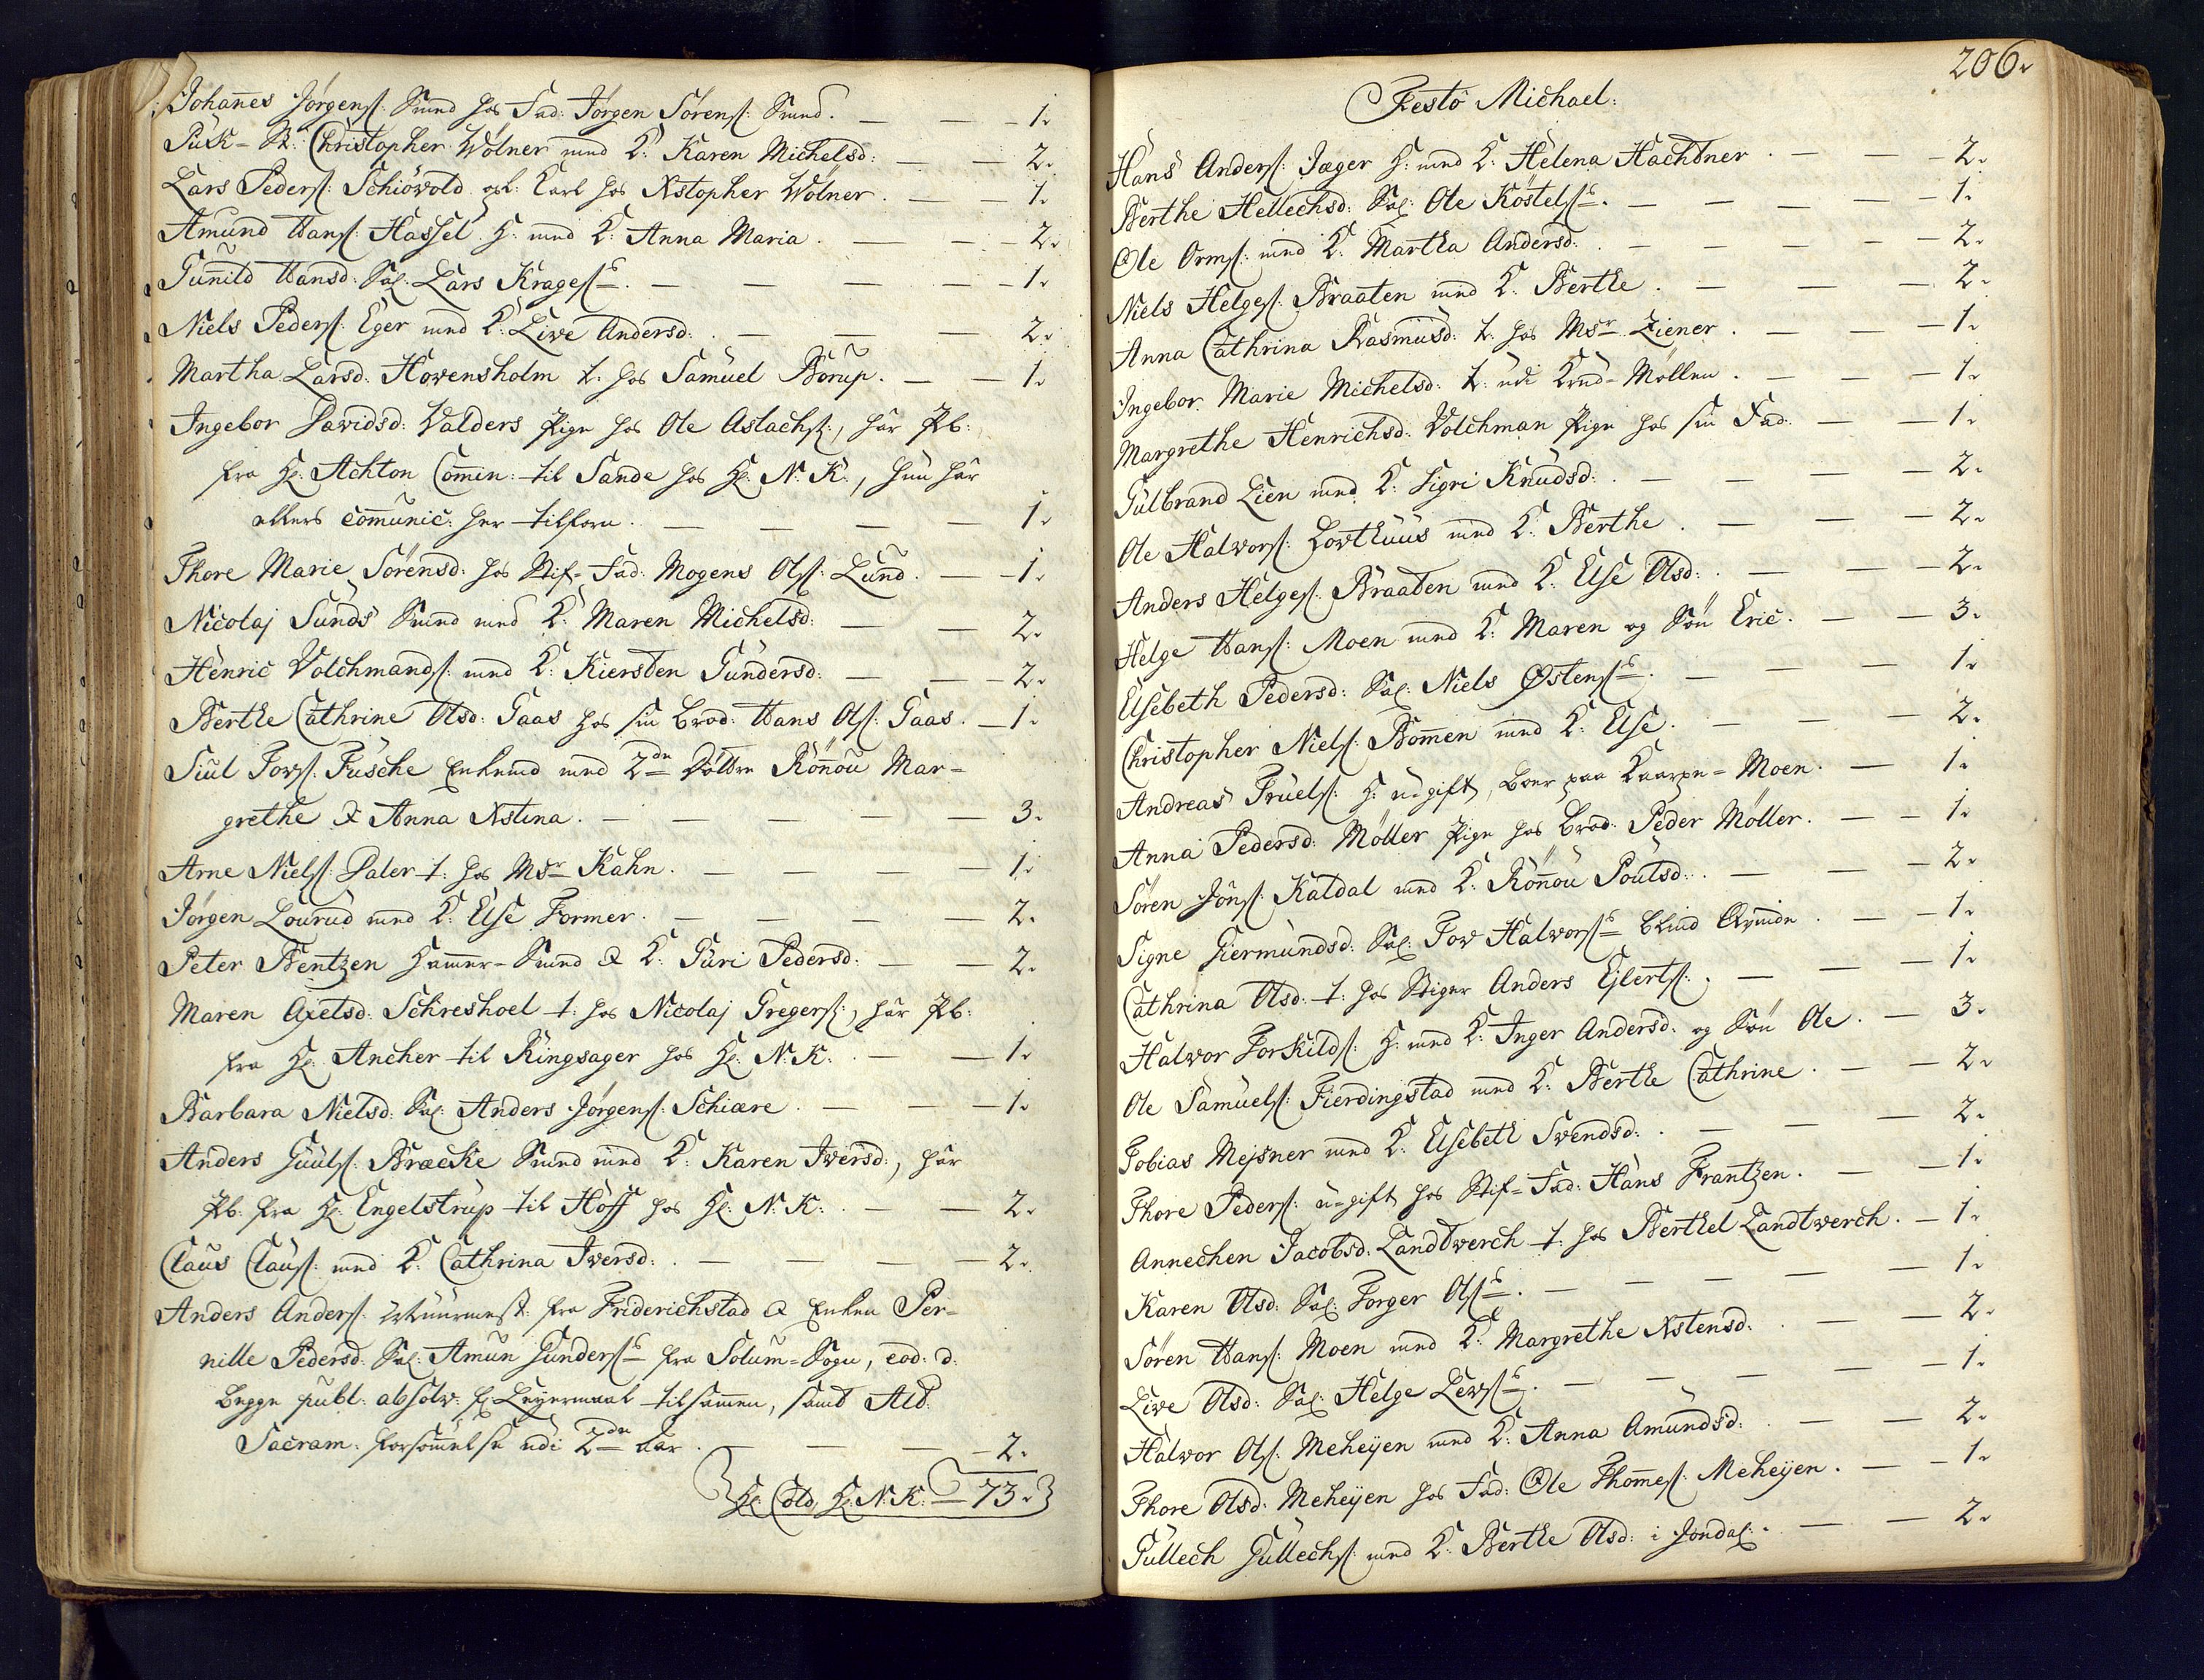 Johañes Jörgens: Smed hos Fad: Jörgen Sörens: Smed. — — 1.
Puk-St: Christopher Wölner med K: Karen Michelsd: — — 2.
Lars Peders: Schiöwold gl: Karl hos Xstopher Wölner. — — 1.
Amund Hans: Hassel H: med K: Anna Maria. — — 2.
Guñild Hansd: Sal: Lars Krages — — — — 1.
Niels Peders: Eger med K: Live Andersd: — — — 2.
Martha Larsd: Hovensholm t: hos Samuel Borup. — — 1.
Ingebor Davidsd: Valders Pige hos Ole Aslachs:, har Pb:
fra Hr: Achton Com̃in: til Sande hos Hr: N: K:, hun har
ellers com̃unic: her tilforn. — — — — 1.
Thore Marie Sörensd: hos Stif-Fad: Mogens Ols: Lund. — 1.
Nicolaj Sunds Smed med K: Maren Michelsd: — — 2.
Henric Volchmands: med K: Kiersten Gundersd: — — 2.
Berthe Cathrine Olsd: Gaas hos sin Brod: Hans Ols: Gaas. — 1.
Siul Tovs: Fusche Enkemd med 2de Döttre Röñou Mar-
grethe & Anna Xstina. — — — — — 3.
Arne Niels: Daler t: hos Msr Kahn. — — — — 1.
Jörgen Lourud med K: Else Former. — — — — 2.
Peter Bentzen Ham̃er-Smed & K: Guri Pedersd: — — 2.
Maren Axelsd: Schreshoel t: hos Nicolaj Gregers:, har Pb:
fra Hr: Ancher til Ringsager hos Hr: N: K: — — 1.
Barbara Nielsd: Sal: Anders Jörgens: Schiære. — — — 1.
Anders Guuls: Bræcke Smed med K: Karen Iversd:, har
Pb: fra Hr: Engelstrup til Hoff hos Hr: N: K: — — 2.
Claus Claus: med K: Cathrina Iversd: — — — — 2.
Anders Anders: Muurmest: fra Friderichstad & Enken Per-
nille Pedersd: Sal: Amun Gunders fra Solum-Sogn, eod: d:
begge publ: absolv: for Leyermaal tilsam̃en, samt Alt:
Sacram: forsom̃else udi 2de Aar. — — — — 2.
Hr: Cold, Hr: N: K: — 73.
206.
Festo Michael:
Hans Anders: Jæger H: med K: Helena Hachtner. — — 2.
Berthe Hellechsd: Sal: Ole Köstels — — — — 1.
Ole Orms: med K: Martha Andersd: — — — — 2.
Niels Helges: Braaten med K: Berthe. — — — 2.
Anna Cathrina Rasmusd: t: hos Msr Ziener. — — — 1.
Ingebor Marie Michelsd: t: udi Krud-Möllen. — — — 1.
Margrethe Henrichsd: Volchman Pige hos sin Fad: — — 1.
Gulbrand Lien med K: Sigri Knudsd: — — — 2.
Ole Halvors: Lovthuus med K: Berthe. — — — 2.
Anders Helges: Braaten med K: Else Olsd: — — — 2.
Helge Hans: Moen med K: Maren og Sön Eric. — — 3.
Elsebeth Pedersd: Sal: Niels Østens — — — 1.
Christopher Niels: Bom̃en med K: Else. — — — 2.
Andreas Truels: H: ugift, boer paa Kaarpe-Moen. — 1.
Anna Pedersd: Möller Pige hos Brod: Peder Möller. — — 1.
Sören Jöns: Kaldal med K: Röñou Poulsd: — — — 2.
Signe Giermundsd: Sal: Tov Halvors blind Qvinde. — — 1.
Cathrina Olsd: t: hos Stiger Anders Ejlerts: — — — 1.
Halvor Torkilds: H: med K: Inger Andersd: og Sön Ole. — 3.
Ole Samuels: Fierdingstad med K: Berthe Cathrine. — — 2.
Tobias Mejsner med K: Elsebeth Svendsd: — — — 2.
Thore Peders: u-gift hos Stif-Fad: Hans Frantzen. — — 1.
Annechen Jacobsd: Landtwerch t: hos Berthel Landtwerch. — 1.
Karen Olsd: Sal: Torger Ols — — — — — 1.
Sören Hans: Moen med K: Margrethe Xstensd: — — 2.
Live Olsd: Sal: Helge Levs — — — — — 1.
Halvor Ols: Meheÿen med K: Anna Amundsd: — — 2.
Thore Olsd: Meheÿen hos Fad: Ole Thom̃es: Meheÿen. — — 1.
Gullech Gullechs: med K: Berthe Olsd: i Jondal: — — 2.